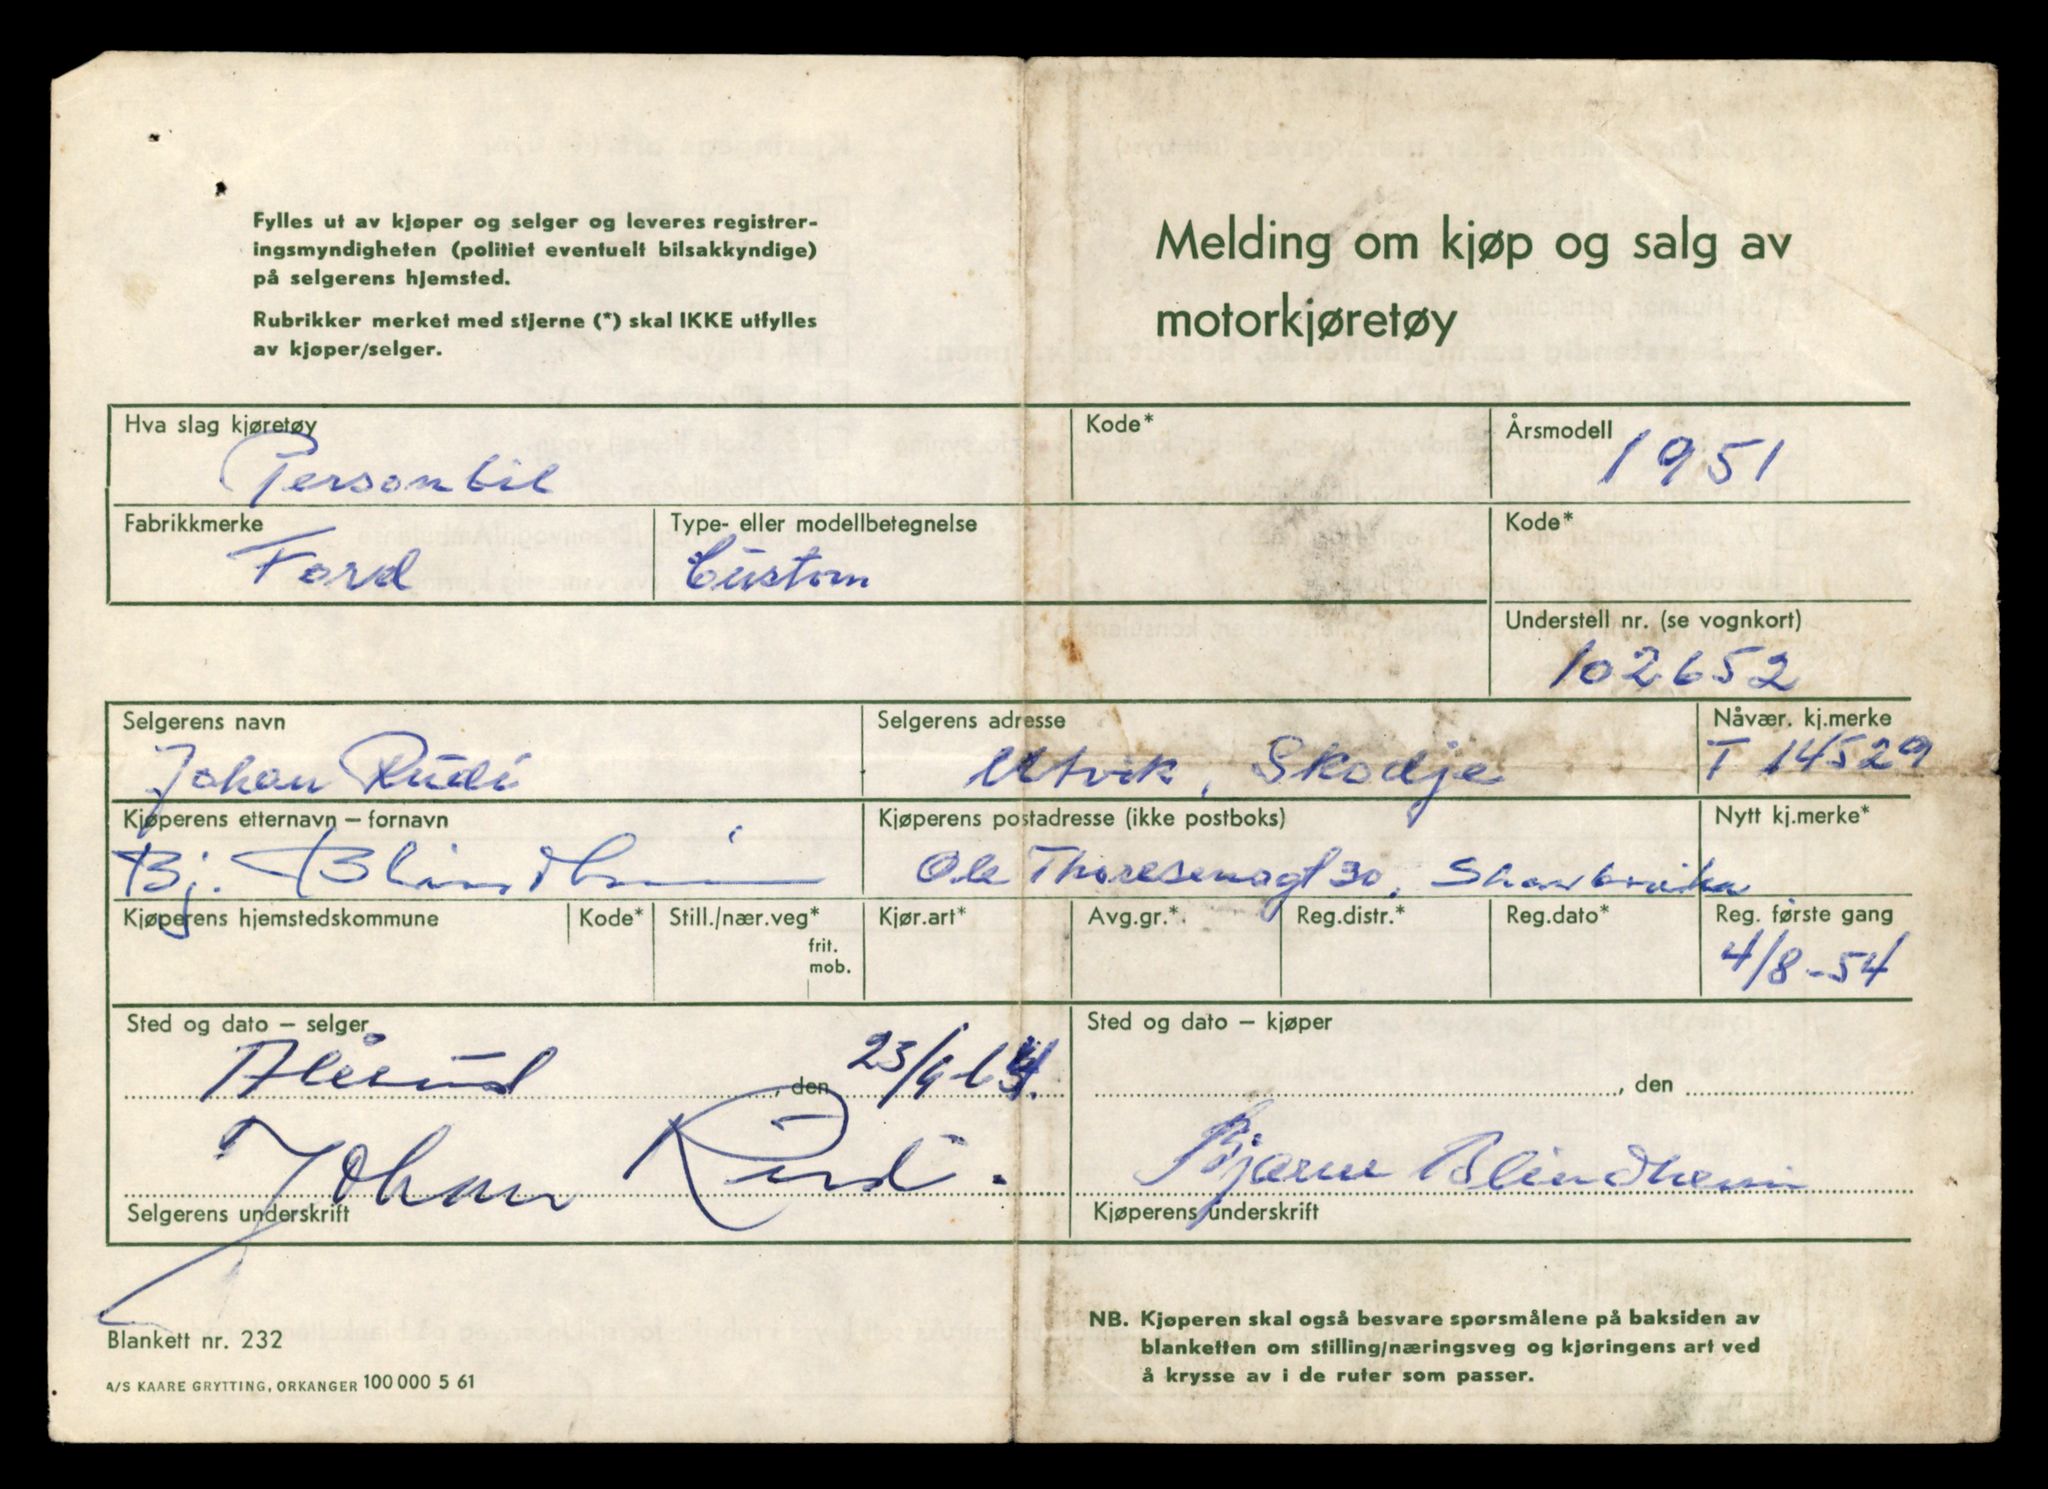 Fylles ut av kjøper og selger og leveres registrer-
ingsmyndigheten (politiet eventuelt bilsakkyndige)
på selgerens hjemsted.
Rubrikker merket med stjerne (*) skal IKKE utfylles
av kjøper/selger.
Melding om kjøp og salg av
motorkjøretøy
Hva slag kjøretøy
Personbil
Kode*
Årsmodell
1951
Fabrikkmerke
Ford
Type- eller modellbetegnelse
Custom
Kode*
Understell nr. (se vognkort)
102652
Selgerens navn
Johan Rudi
Selgerens adresse
Utvik, Skodje
Nåvær. kj.merke
T 14529
Kjøperens etternavn – fornavn
Bj. Blindheim
Kjøperens postadresse (ikke postboks)
Ole Thoresensgt 30,
Nytt kj.merke*
Kjøperens hjemstedskommune
Kode*
Still./nær.veg*
frit.
mob.
Kjør.art*
Avg.gr.*.
Reg.distr.*
Reg.dato*
Reg. første gang
4/8-54
Sted og dato – selger
Ålesund, den
Sted og dato – kjøper
, den
Johan Rudi.
Selgerens underskrift
Bjarne Blindheim
Kjøperens underskrift
Blankett nr. 232
A/S KAARE GRYTTING, ORKANGER 100 000 5 61
NB. Kjøperen skal også besvare spørsmålene på baksiden av
blanketten om stilling/næringsveg og kjøringens art ved
å krysse av i de ruter som passer.